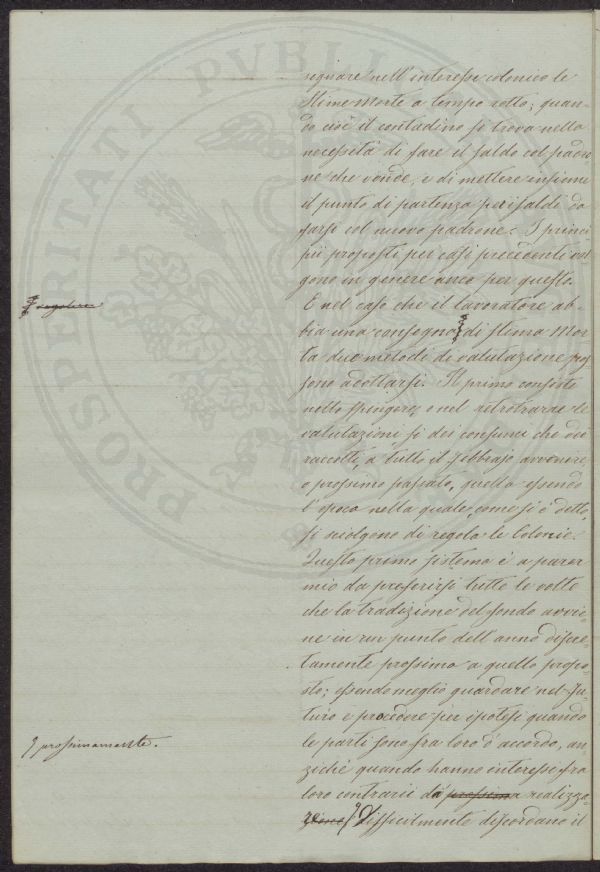 PROSPERITATI PVBLI
riguare nell'interesse colonico le
Stime Morte a tempo rotto; quan-
do cioè il contadino si trova nella
necessità di fare il saldo col padro
ne che vende, e di mettere insieme
il punto di partenza pei saldi da
farsi col nuovo padrone. I princi
pii proposti pei casi precedenti val
gono in genere anco per questo.
E nel caso che il lavoratore ab-
bia una consegna di stima Mor-
ta due metodi di valutazione pos
sono adottarsi. Il primo consiste
nello spingere, o nel retrotrarre le
valutazioni sì dei consumi che dei
raccolti, a tutto il Febbrajo avvenire,
o prossimo passato, quella essendo
l'epoca nella quale, come si è detto,
si sciolgono di regola le Colonie.
Questo primo sistema è a parer
mio da preferirsi tutte le volte
che la tradizione del fondo avvie
ne in un punto dell'anno discre-
tamente prossimo a quello propo-
sto; essendo meglio guardare nel fu-
turo e procedere per ipotesi quando
le parti sono fra loro d'accordo, an-
ziché quando hanno interessi fra
loro contrarii da realizza-
Difficilmente discordano il
regolare
prossimamente.